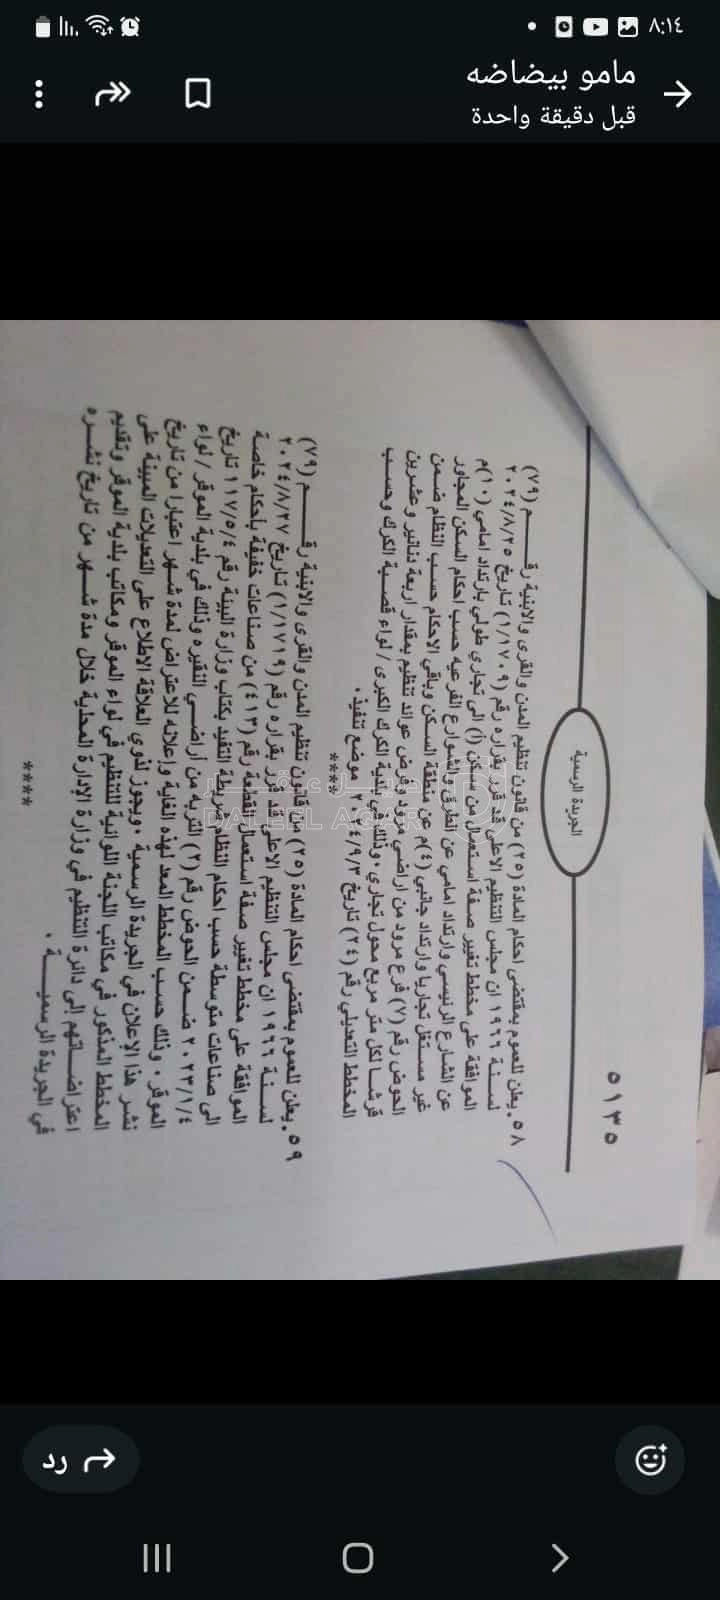 ٨:١٤
مامو بيضاضه
قبل دقيقة واحدة
٥١٣٥
الجريدة الرسمية
٥٨. يعلن للعموم بمقتضى احكام المادة (٢٥) من قانون تنظيم المدن والقرى والابنية رقم (٧٩)
لسنة ١٩٦٦ ان مجلس التنظيم الاعلى قد قرر بقراره رقم (١/١٧٠٩) تاريخ ٢٠٢٤/٨/٢٥
الموافقة على مخطط تغيير صفة استعمال من سكن (أ) الى تجاري طولي بارتداد امامي (١٠)م
عن الشارع الرئيسي وارتداد امامي عن الطرق والشوارع الفرعيه حسب احكام السكن المجاور
غير مستغل تجاريا وارتداد جانبي (٤)م عن منطقة السكن وباقي الاحكام حسب النظام ضمن
الحوض رقم (٧) فرع مرود من اراضي مرود وفرض عوائد تنظيم بمقدار اربعة دنانير وعشرين
قرشا لكل متر مربع محول تجاري . وذلك في بلدية الكرك الكبرى / لواء قصبة الكرك وحسب
المخطط التعديلي رقم (٢٤) تاريخ ٢٠٢٤/٩/٣ موضع تنفيذ .
****
٥٩. يعلن للعموم بمقتضى احكام المادة (٢٥) من قانون تنظيم المدن والقرى والابنية رقم (٧٩)
لسنة ١٩٦٦ ان مجلس التنظيم الاعلى قد قرر بقراره رقم (١/١٧١٩) تاريخ ٢٠٢٤/٨/٢٧
الموافقة على مخطط تغيير صفة استعمال القطعة رقم (٤١٣) من صناعات خفيفة باحكام خاصة
الى صناعات متوسطة حسب احكام النظام شريطة التقيد بكتاب وزارة البيئة رقم ١١٧/٥/٤ تاريخ
٢٠٢٣/١/٤ ضمن الحوض رقم (٢) التربه من أراضي النقيره وذلك في بلدية الموقر / لواء
الموقر . وذلك حسب المخطط المعد لهذه الغاية وإعلانه للاعتراض لمدة شهر اعتبارا من تاريخ
نشر هذا الإعلان في الجريدة الرسمية . ويجوز لذوي العلاقة الاطلاع على التعديلات المبينة على
المخطط المذكور في مكاتب اللجنة اللوائية للتنظيم في لواء الموقر ومكاتب بلدية الموقر وتقديم
اعتراضاتهم إلى دائرة التنظيم في وزارة الإدارة المحلية خلال مدة شهر من تاريخ نشره
في الجريدة الرسمية .
****
دليل عقار
DALEEL AGAR
رد